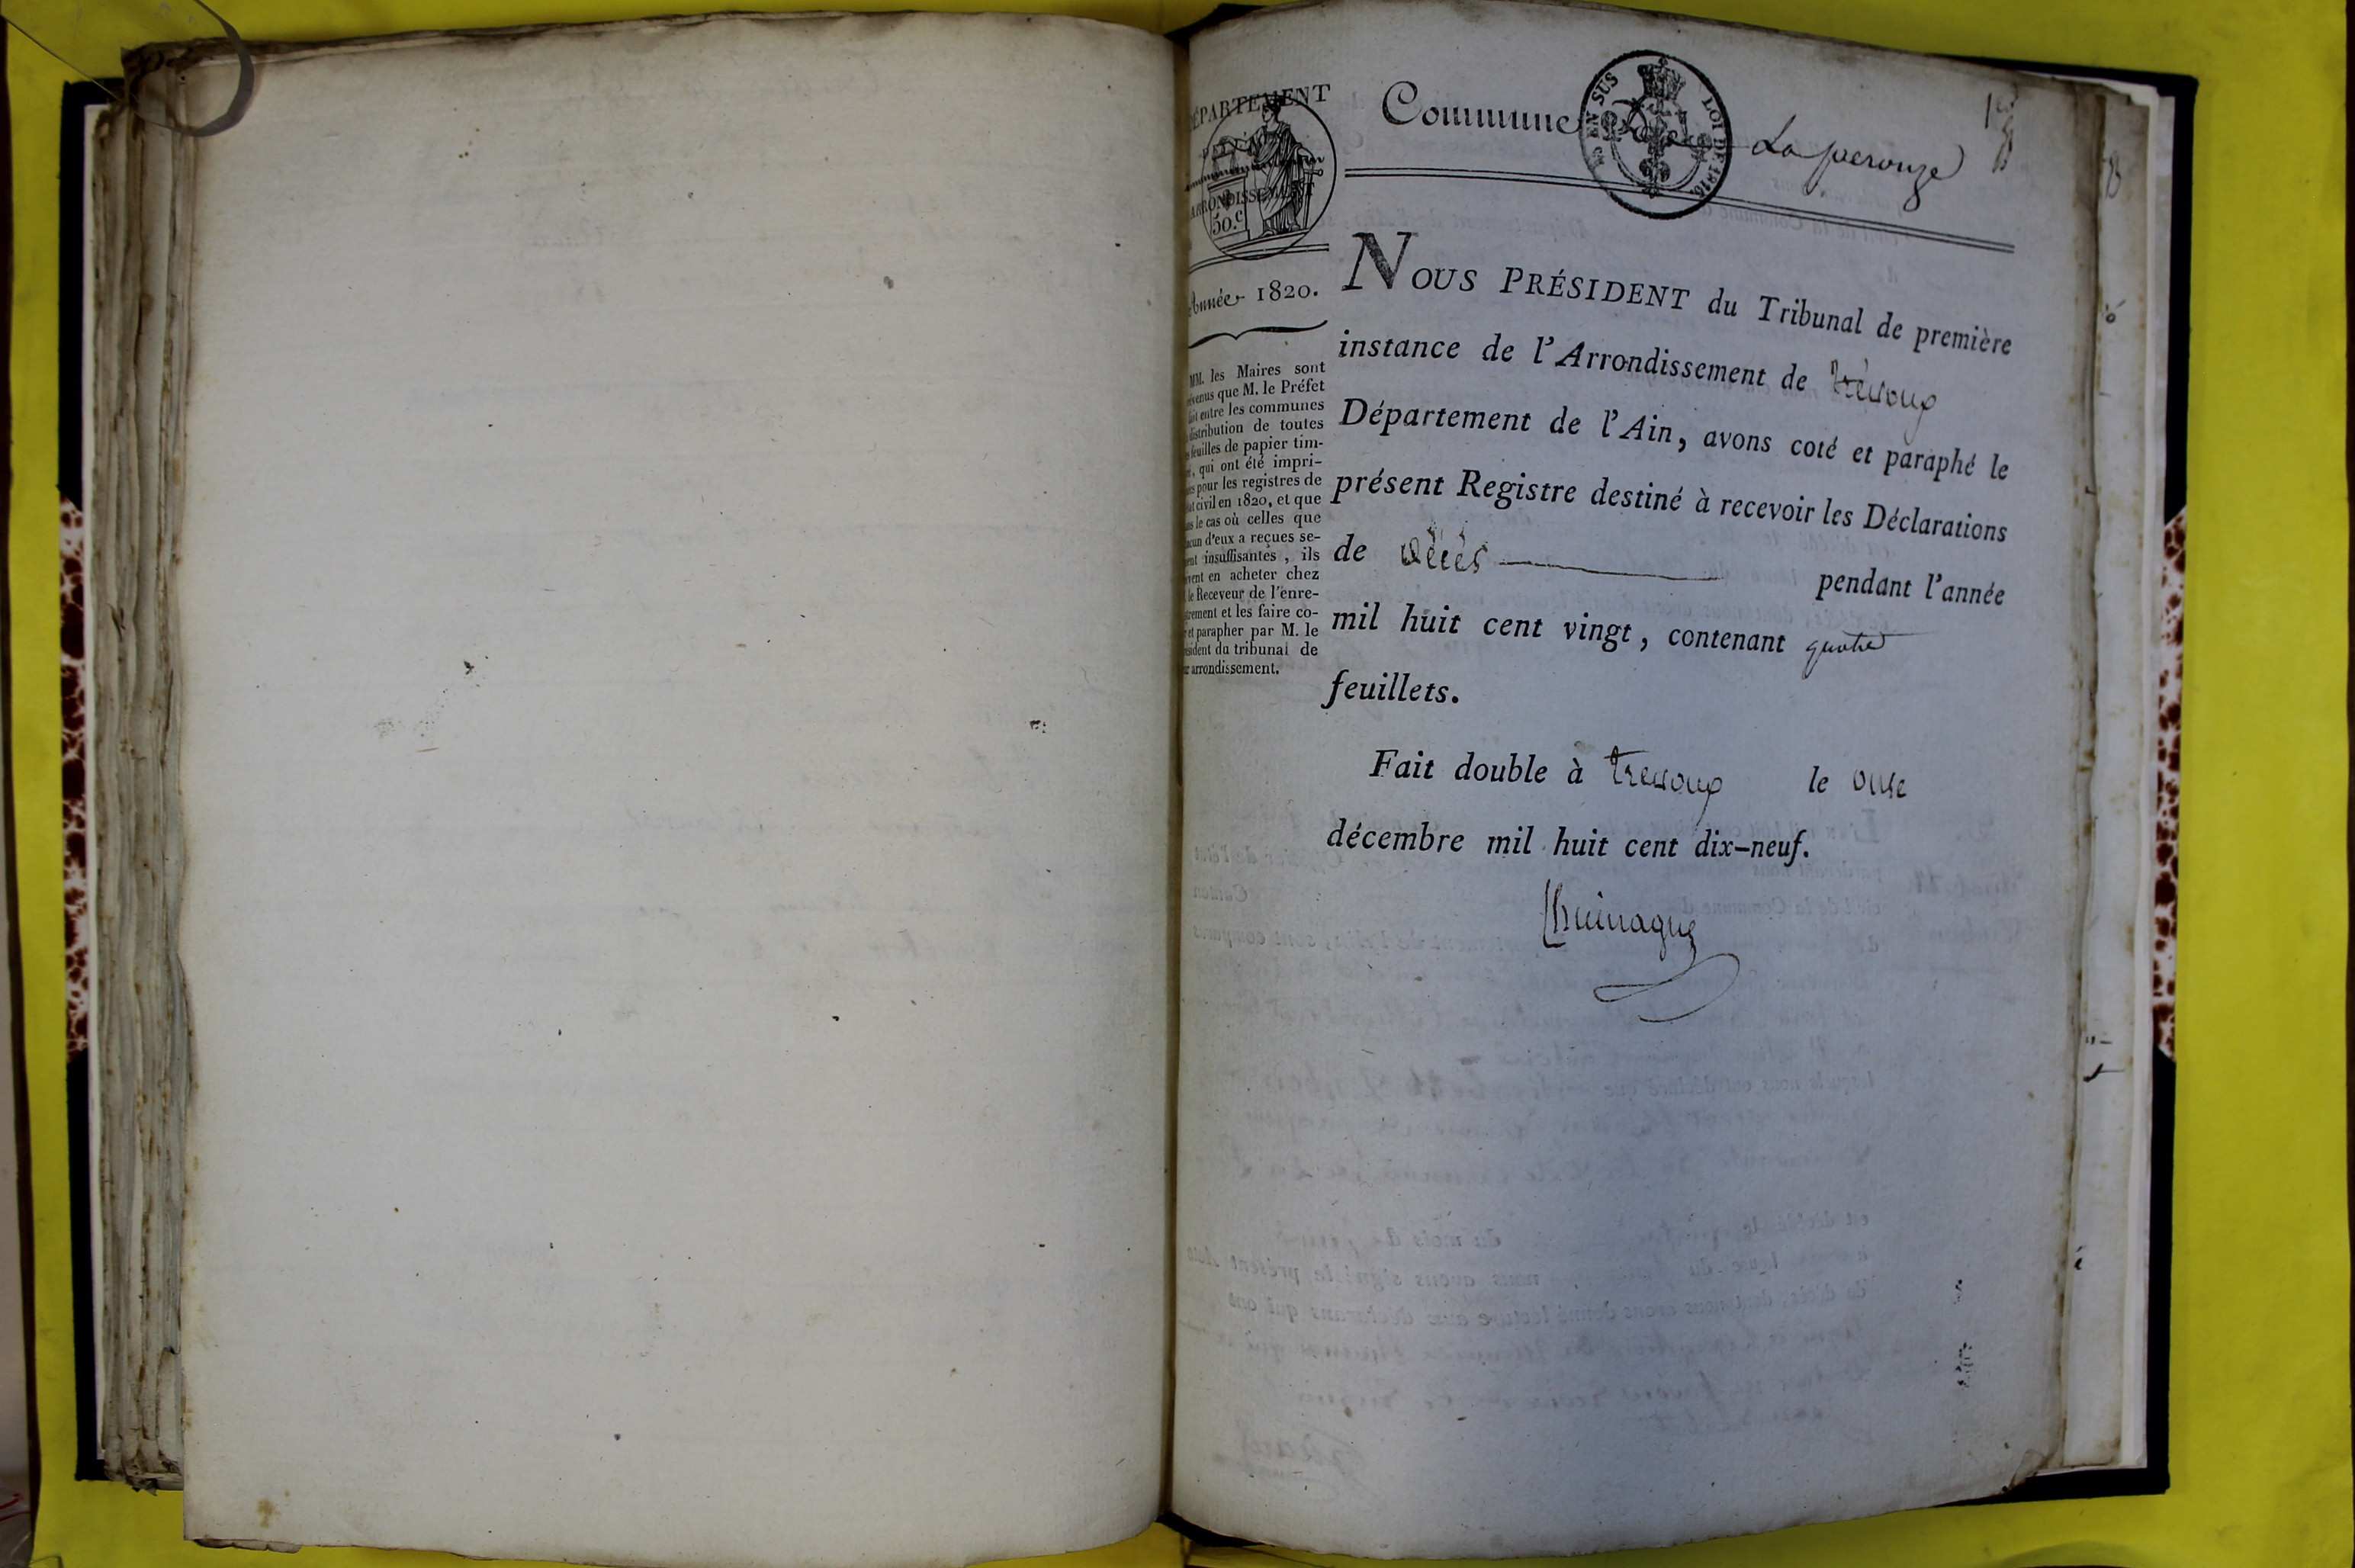 DÉPARTEMENT
ARRONDISSEMENT
50.c
EN SUS
LOI DE 1816
Commune de La perouze
1er
Année 1820.
MM. les Maires sont
venus que M. le Préfet
fait entre les communes
distribution de toutes
feuilles de papier tim-
, qui ont été impri-
pour les registres de
civil en 1820, et que
le cas où celles que
d'eux a reçues se-
insuffisantes, ils
en acheter chez
le Receveur de l'enre-
et les faire co-
et parapher par M. le
du tribunal de
arrondissement.
NOUS PRÉSIDENT du Tribunal de première
instance de l'Arrondissement de trévoux
Département de l'Ain, avons coté et paraphé le
présent Registre destiné à recevoir les Déclarations
de décés pendant l'année
mil huit cent vingt, contenant quatre
feuillets.
Fait double à trevoux le onse
décembre mil huit cent dix-neuf.